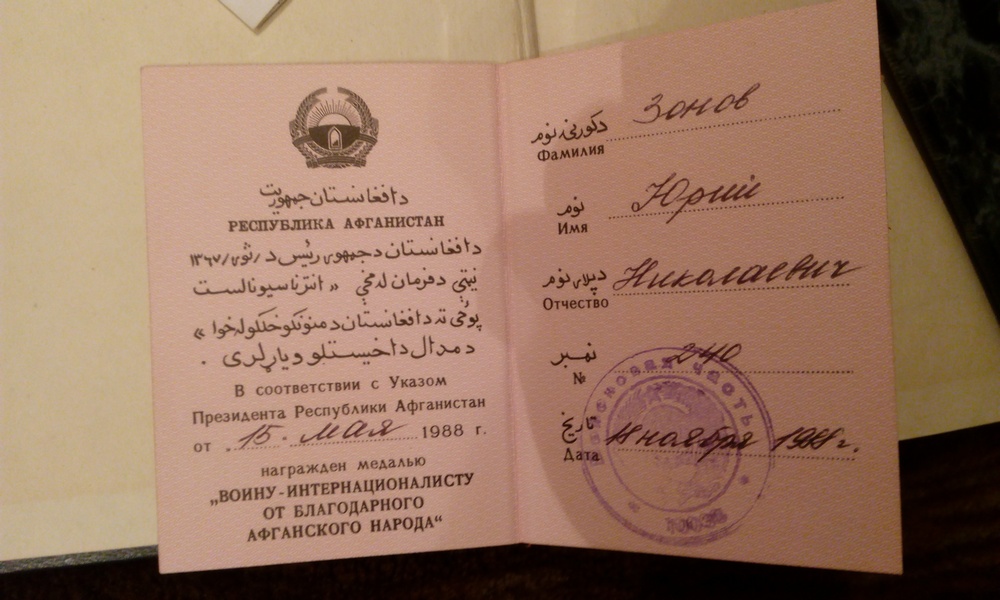 دافغانستان جمهوریت
РЕСПУБЛИКА АФГАНИСТАН
دافغانستان دجمهوری رئیس د /ثور/۱۳۶۷
نیټې دفرمان له مخې « انترناسیونالست
پوځی ته دافغانستان دمنونکو خلکو له خوا »
دمدال داخیستلو ویاړلری .
В соответствии с Указом
Президента Республики Афганистан
от „15. мая 1988 г.
награжден медалью
„ВОИНУ-ИНТЕРНАЦИОНАЛИСТУ
ОТ БЛАГОДАРНОГО
АФГАНСКОГО НАРОДА“
دکورنۍ نوم Зонов
Фамилия
نوم Юрий
Имя
دپلار نوم Николаевич
Отчество
نمبر 240
№
تاریخ
Дата ноября 1988г.
Войсковая часть